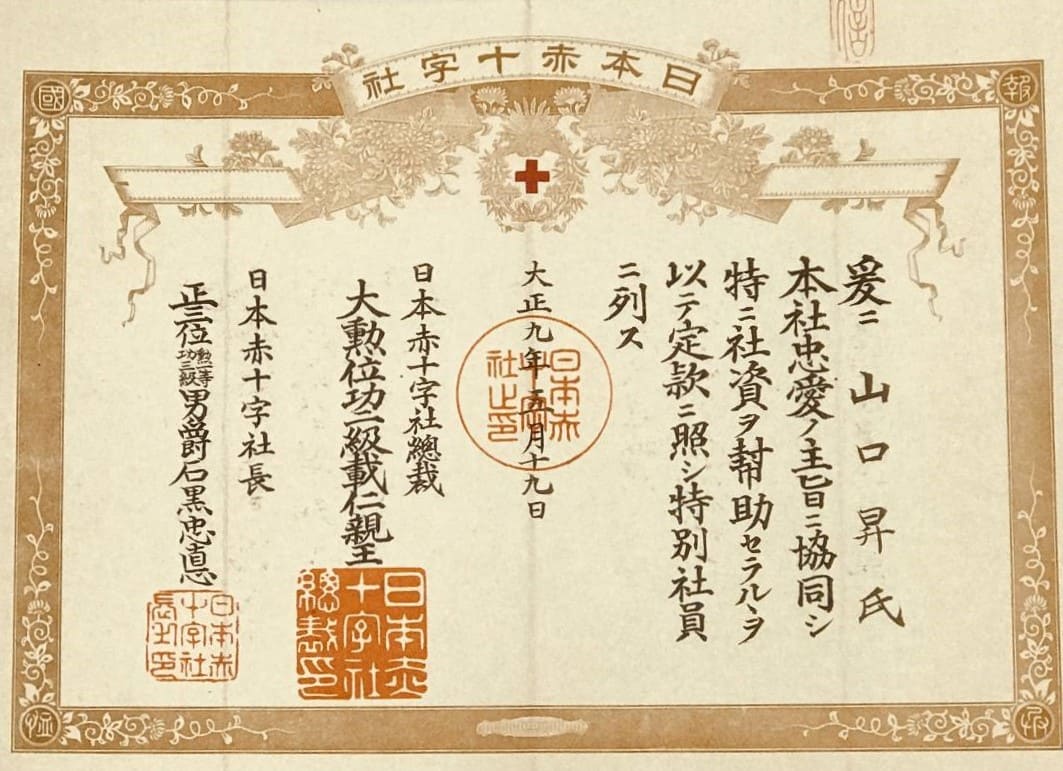 日本赤十字社
報
國
恤
兵
爰ニ 山口昇氏
本社忠愛ノ主旨ニ協同シ
特ニ社資ヲ幇助セラルヽヲ
以テ定款ニ照シ特別社員
ニ列ス
大正九年五月十九日
日本赤十字社之印
日本赤十字社總裁
大勲位功二級載仁親王
日本赤十字社總裁印
日本赤十字社長
正三位勲一等功三級男爵石黒忠悳
日本赤十字社長之印